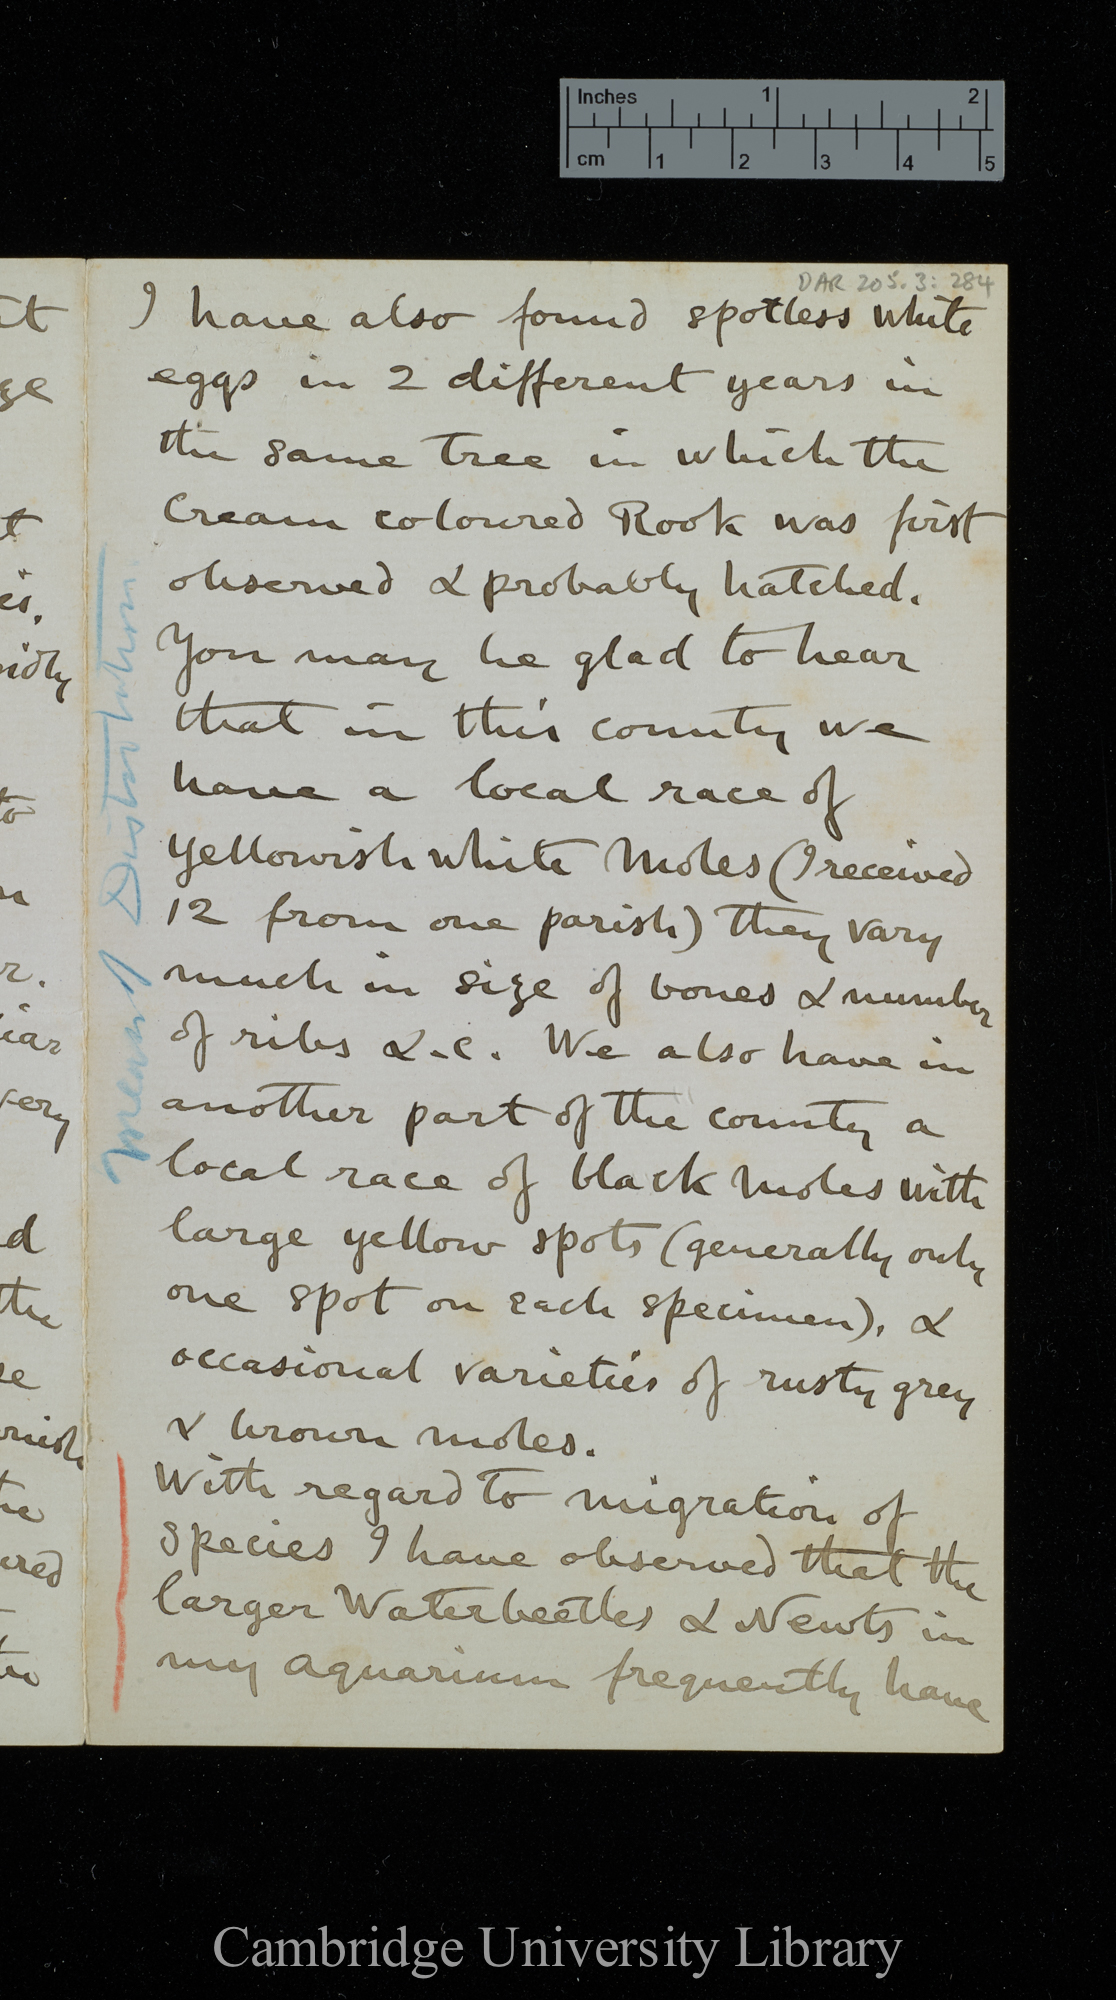 Inches 1 2
cm 1 2 3 4 5
DAR 205.3: 284
I have also found spotless white
eggs in 2 different years in
the same tree in which the
Cream coloured Rook was first
observed & probably hatched.
You may be glad to hear
that in this county we
have a local race of
yellowish white Moles (I received
12 from one parish) they vary
much in size of bones & number
of ribs &.c. We also have in
another part of the county a
local race of black Moles with
large yellow spots (generally only
one spot on each specimen), &
occasional varieties of rusty grey
& brown moles.
With regard to migration of
Species I have observed that the
larger Waterbeetles & Newts in
my aquarium frequently have
Means of Distribution
Cambridge University Library